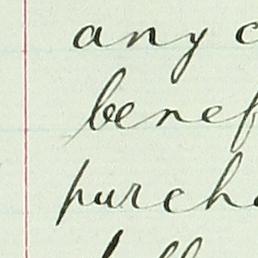 any c
benef
purcha